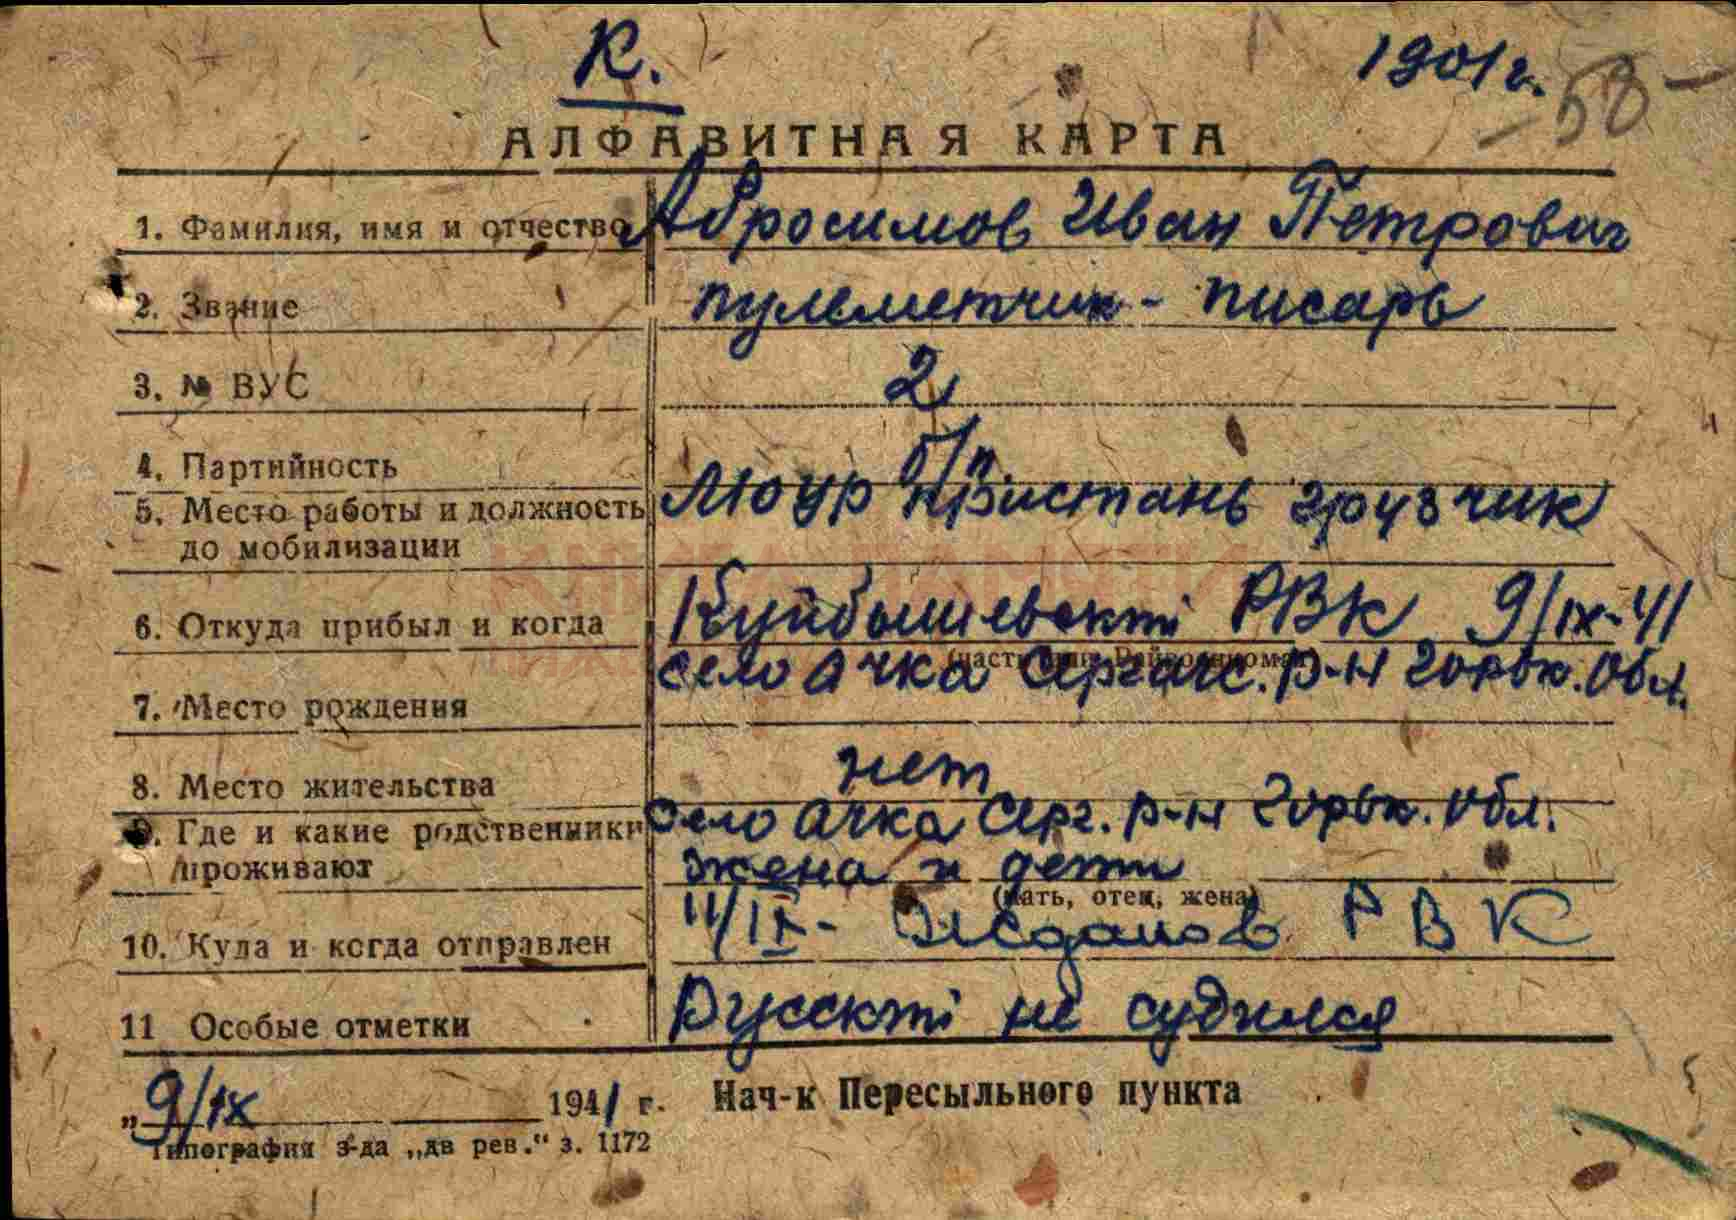 К. 1901 г. -58-
АЛФАВИТНАЯ КАРТА
1. Фамилия, имя и отчество Абросимов Иван Петрович
2. Звание пулеметчик - писарь
3. № ВУС 2
4. Партийность б/п
5. Место работы и должность МОУР пристань грузчик
до мобилизации
КНИГА ПАМЯТИ
6. Откуда прибыл и когда Куйбышевский РВК 9/IX-41
(часть или Райвоенкомат)
село Ачка Сергач. р-н Горьк. обл.
7. Место рождения
8. Место жительства нет
9. Где и какие родственники село Ачка Серг. р-н Горьк. обл.
проживают жена и дети
(мать, отец, жена)
10. Куда и когда отправлен 11/IX- РВК
11 Особые отметки Русский не судился
„9/IX 1941 г. Нач-к Пересыльного пункта
Типография з-да „дв рев.“ з. 1172